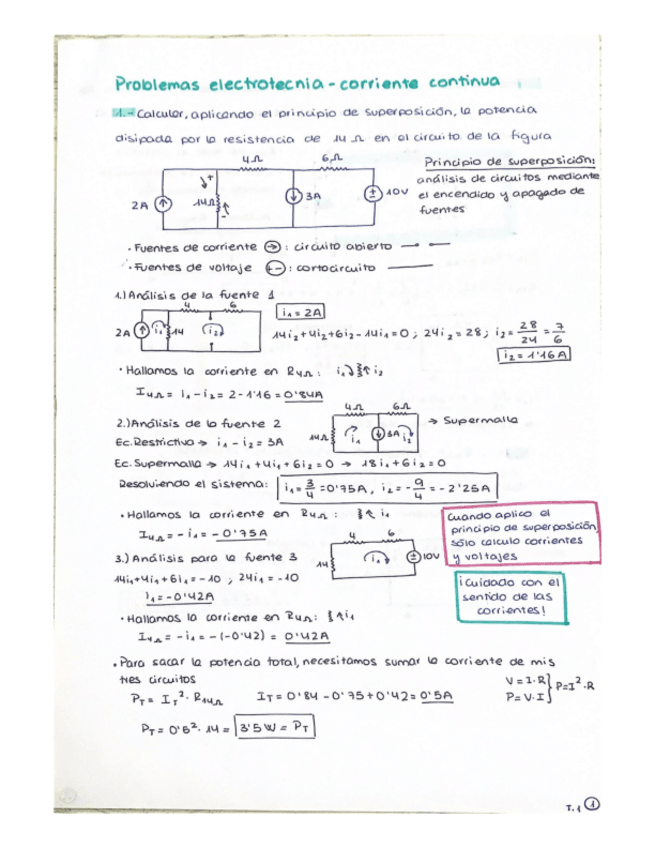 Problemas electrotecnia - corriente continua
1.- Calcular, aplicando el principio de superposición, la potencia
disipada por la resistencia de 14 Ω en el circuito de la figura
4Ω 6Ω
2A 14Ω 3A 10V
+
-
Principio de superposición:
análisis de circuitos mediante
el encendido y apagado de
fuentes
· Fuentes de corriente : circuito abierto
· Fuentes de voltaje + - : cortocircuito
1.) Análisis de la fuente 1
4 6
2A i₁ 14 i₂
i₁ = 2A
14i₂ + 4i₂ + 6i₂ - 14i₁ = 0 ; 24i₂ = 28 ; i₂ = 28/24 = 7/6
i₂ = 1'16A
· Hallamos la corriente en R₁₄Ω : i₁ i₂
I₁₄Ω = i₁ - i₂ = 2 - 1'16 = 0'84A
2.) Análisis de la fuente 2
4Ω 6Ω
14Ω i₁ 3A i₂
→ Supermalla
Ec. Restrictiva → i₁ - i₂ = 3A
Ec. Supermalla → 14i₁ + 4i₁ + 6i₂ = 0 → 18i₁ + 6i₂ = 0
Resolviendo el sistema: i₁ = 3/4 = 0'75A , i₂ = - 9/4 = -2'25A
· Hallamos la corriente en R₁₄Ω : ↑ i₁
I₁₄Ω = - i₁ = - 0'75A
Cuando aplico el
principio de superposición,
sólo calculo corrientes
y voltajes
3.) Análisis para la fuente 3
4 6
14 i₁ 10V
14i₁ + 4i₁ + 6i₁ = -10 ; 24i₁ = -10
i₁ = -0'42A
¡Cuidado con el
sentido de las
corrientes!
· Hallamos la corriente en R₁₄Ω : ↑i₁
I₁₄Ω = - i₁ = - (-0'42) = 0'42A
· Para sacar la potencia total, necesitamos sumar la corriente de mis
tres circuitos
V = I·R
P = V·I } P = I²·R
P_T = I_T² · R₁₄Ω I_T = 0'84 - 0'75 + 0'42 = 0'5A
P_T = 0'5² · 14 = 3'5W = P_T
T.1 1